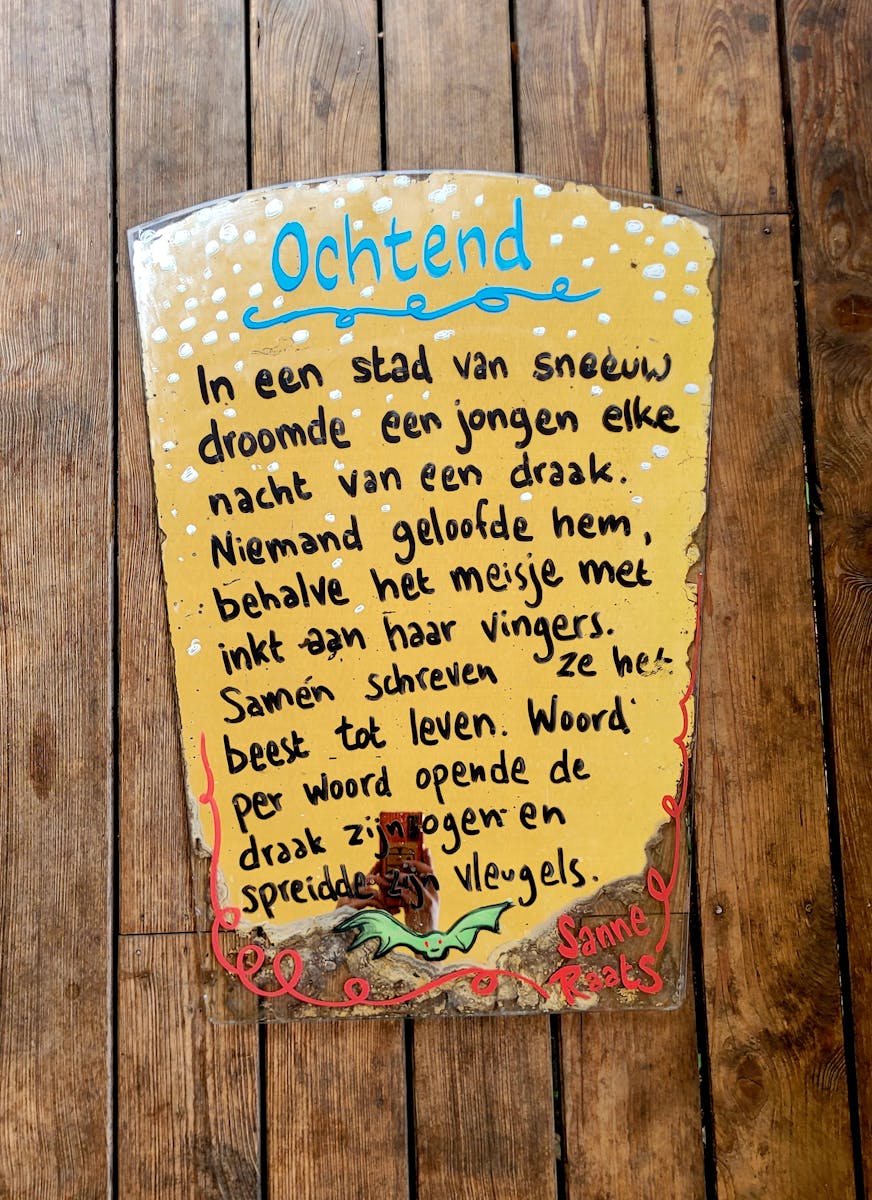 Ochtend
In een stad van sneeuw
droomde een jongen elke
nacht van een draak.
Niemand geloofde hem,
behalve het meisje met
inkt aan haar vingers.
Samen schreven ze het
beest tot leven. Woord
per woord opende de
draak zijn ogen en
spreidde zijn vleugels.
Sanne
Raats